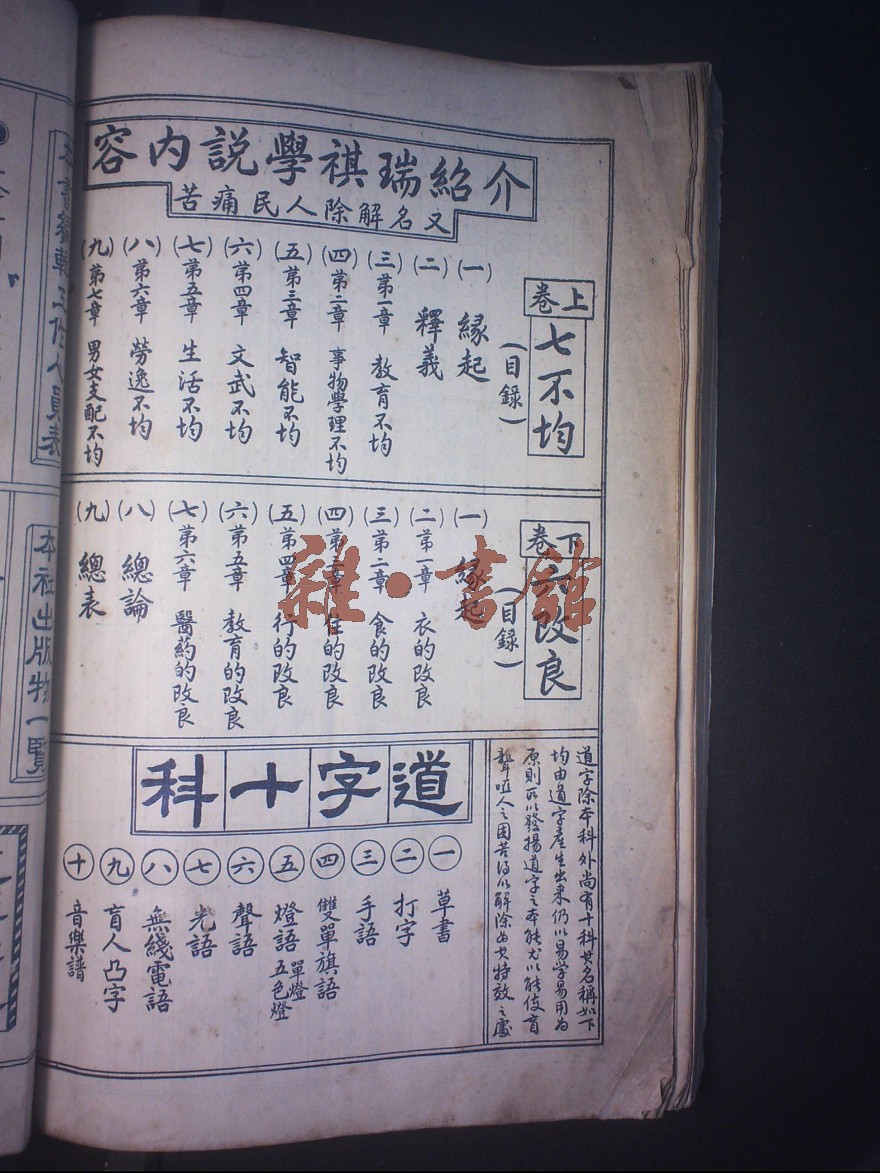 介紹瑞祺學說內容
又名解除人民痛苦
卷上
七不均
(目錄)
(一) 緣起
(二) 釋義
(三) 第一章 教育不均
(四) 第二章 事物學理不均
(五) 第三章 智能不均
(六) 第四章 文武不均
(七) 第五章 生活不均
(八) 第六章 勞逸不均
(九) 第七章 男女支配不均
卷下
六改良
(目錄)
(一) 緣起
(二) 第一章 衣的改良
(三) 第二章 食的改良
(四) 第三章 住的改良
(五) 第四章 行的改良
(六) 第五章 教育的改良
(七) 第六章 醫药的改良
(八) 總論
(九) 總表
道字除本科外尚有十科其名稱如下
均由道字產生出来仍以易學易用為
原則所以發揚道字之本能尤以能使盲
聾啞人之困苦得以解除為其特效之處
道字十科
一 草書
二 打字
三 手語
四 雙單旗語
五 燈語 單燈 五色燈
六 聲語
七 光語
八 無綫電語
九 盲人凸字
十 音樂譜
本社出版物一覽
雜·書館